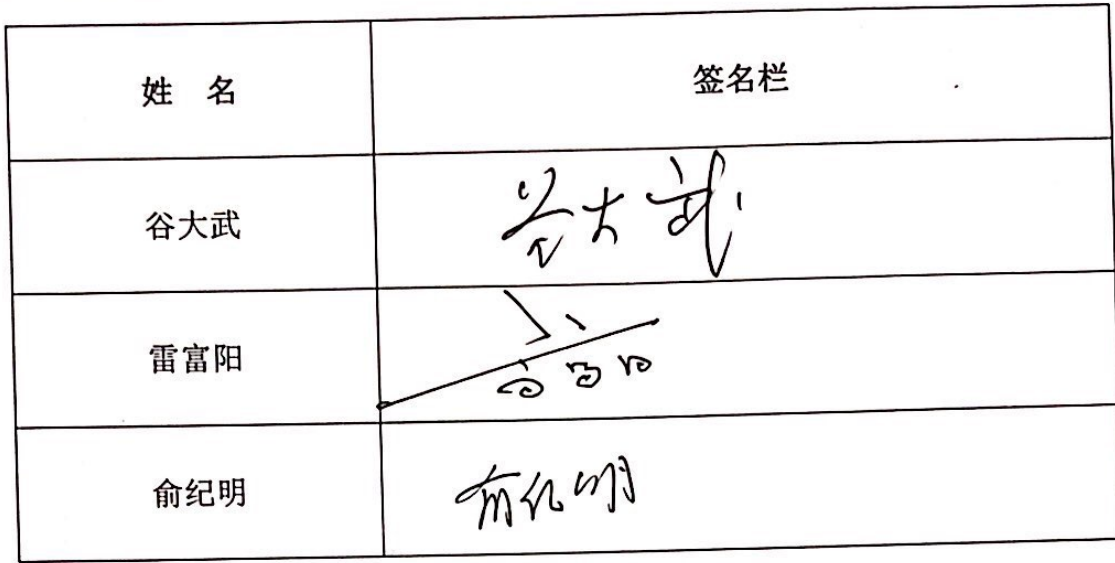 姓 名 签名栏
谷大武 谷大武
雷富阳
俞纪明 俞纪明